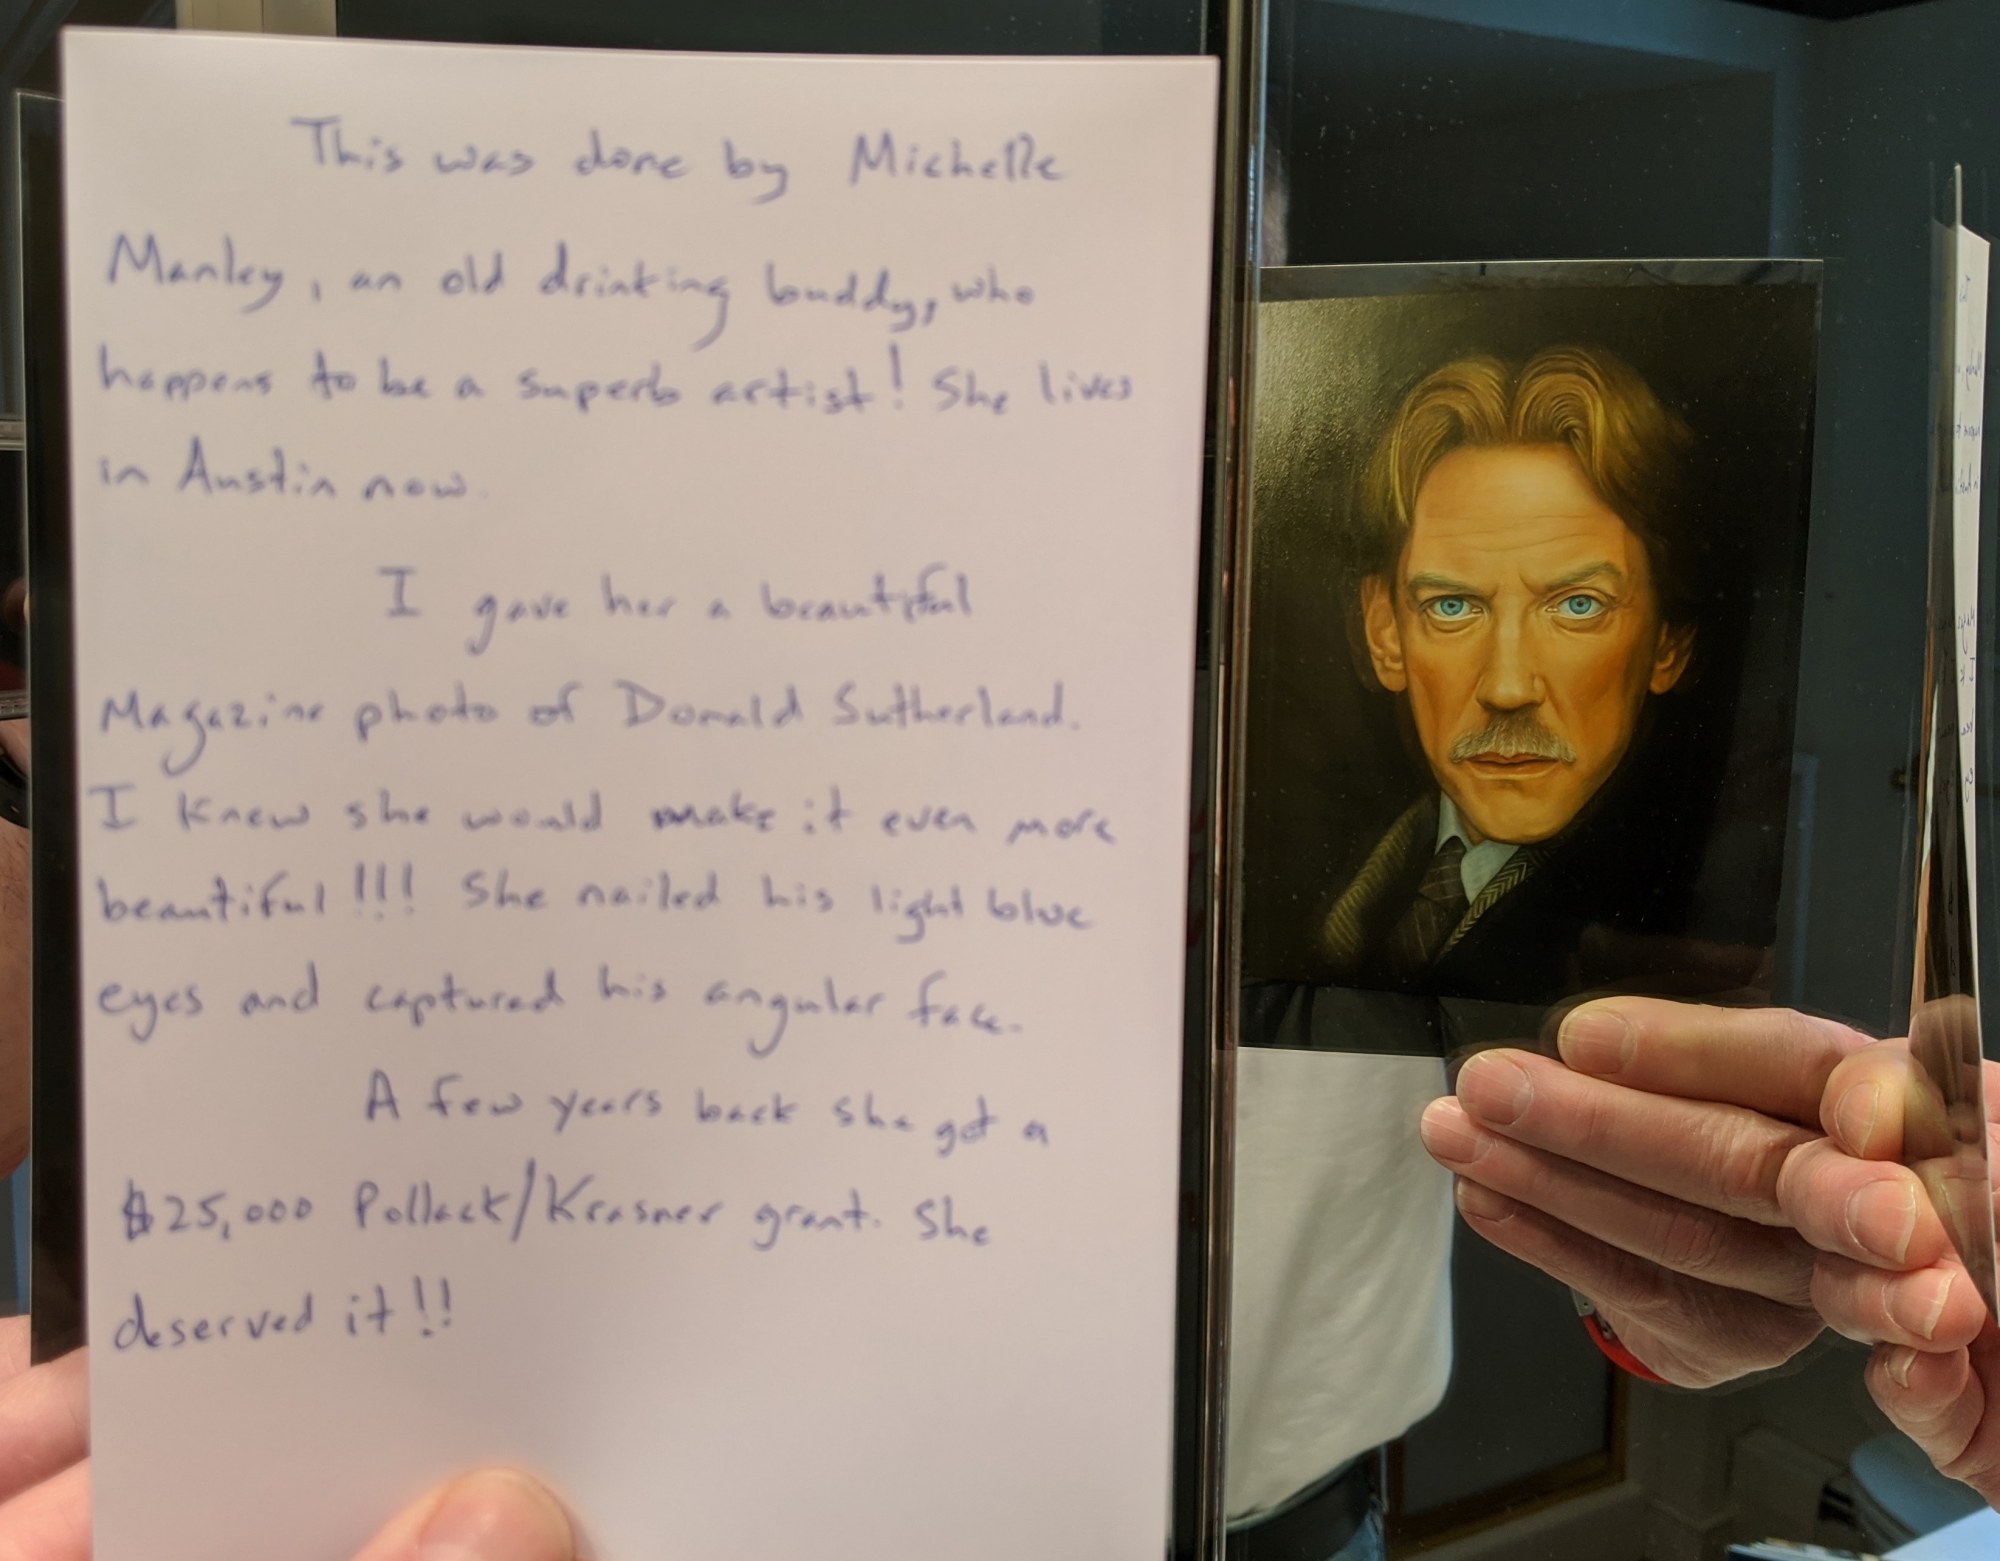 This was done by Michelle
Manley, an old drinking buddy, who
happens to be a superb artist! She lives
in Austin now.
I gave her a beautiful
Magazine photo of Donald Sutherland.
I knew she would make it even more
beautiful!!! She nailed his light blue
eyes and captured his angular face.
A few years back she got a
$25,000 Pollack/Krasner grant. She
deserved it!!